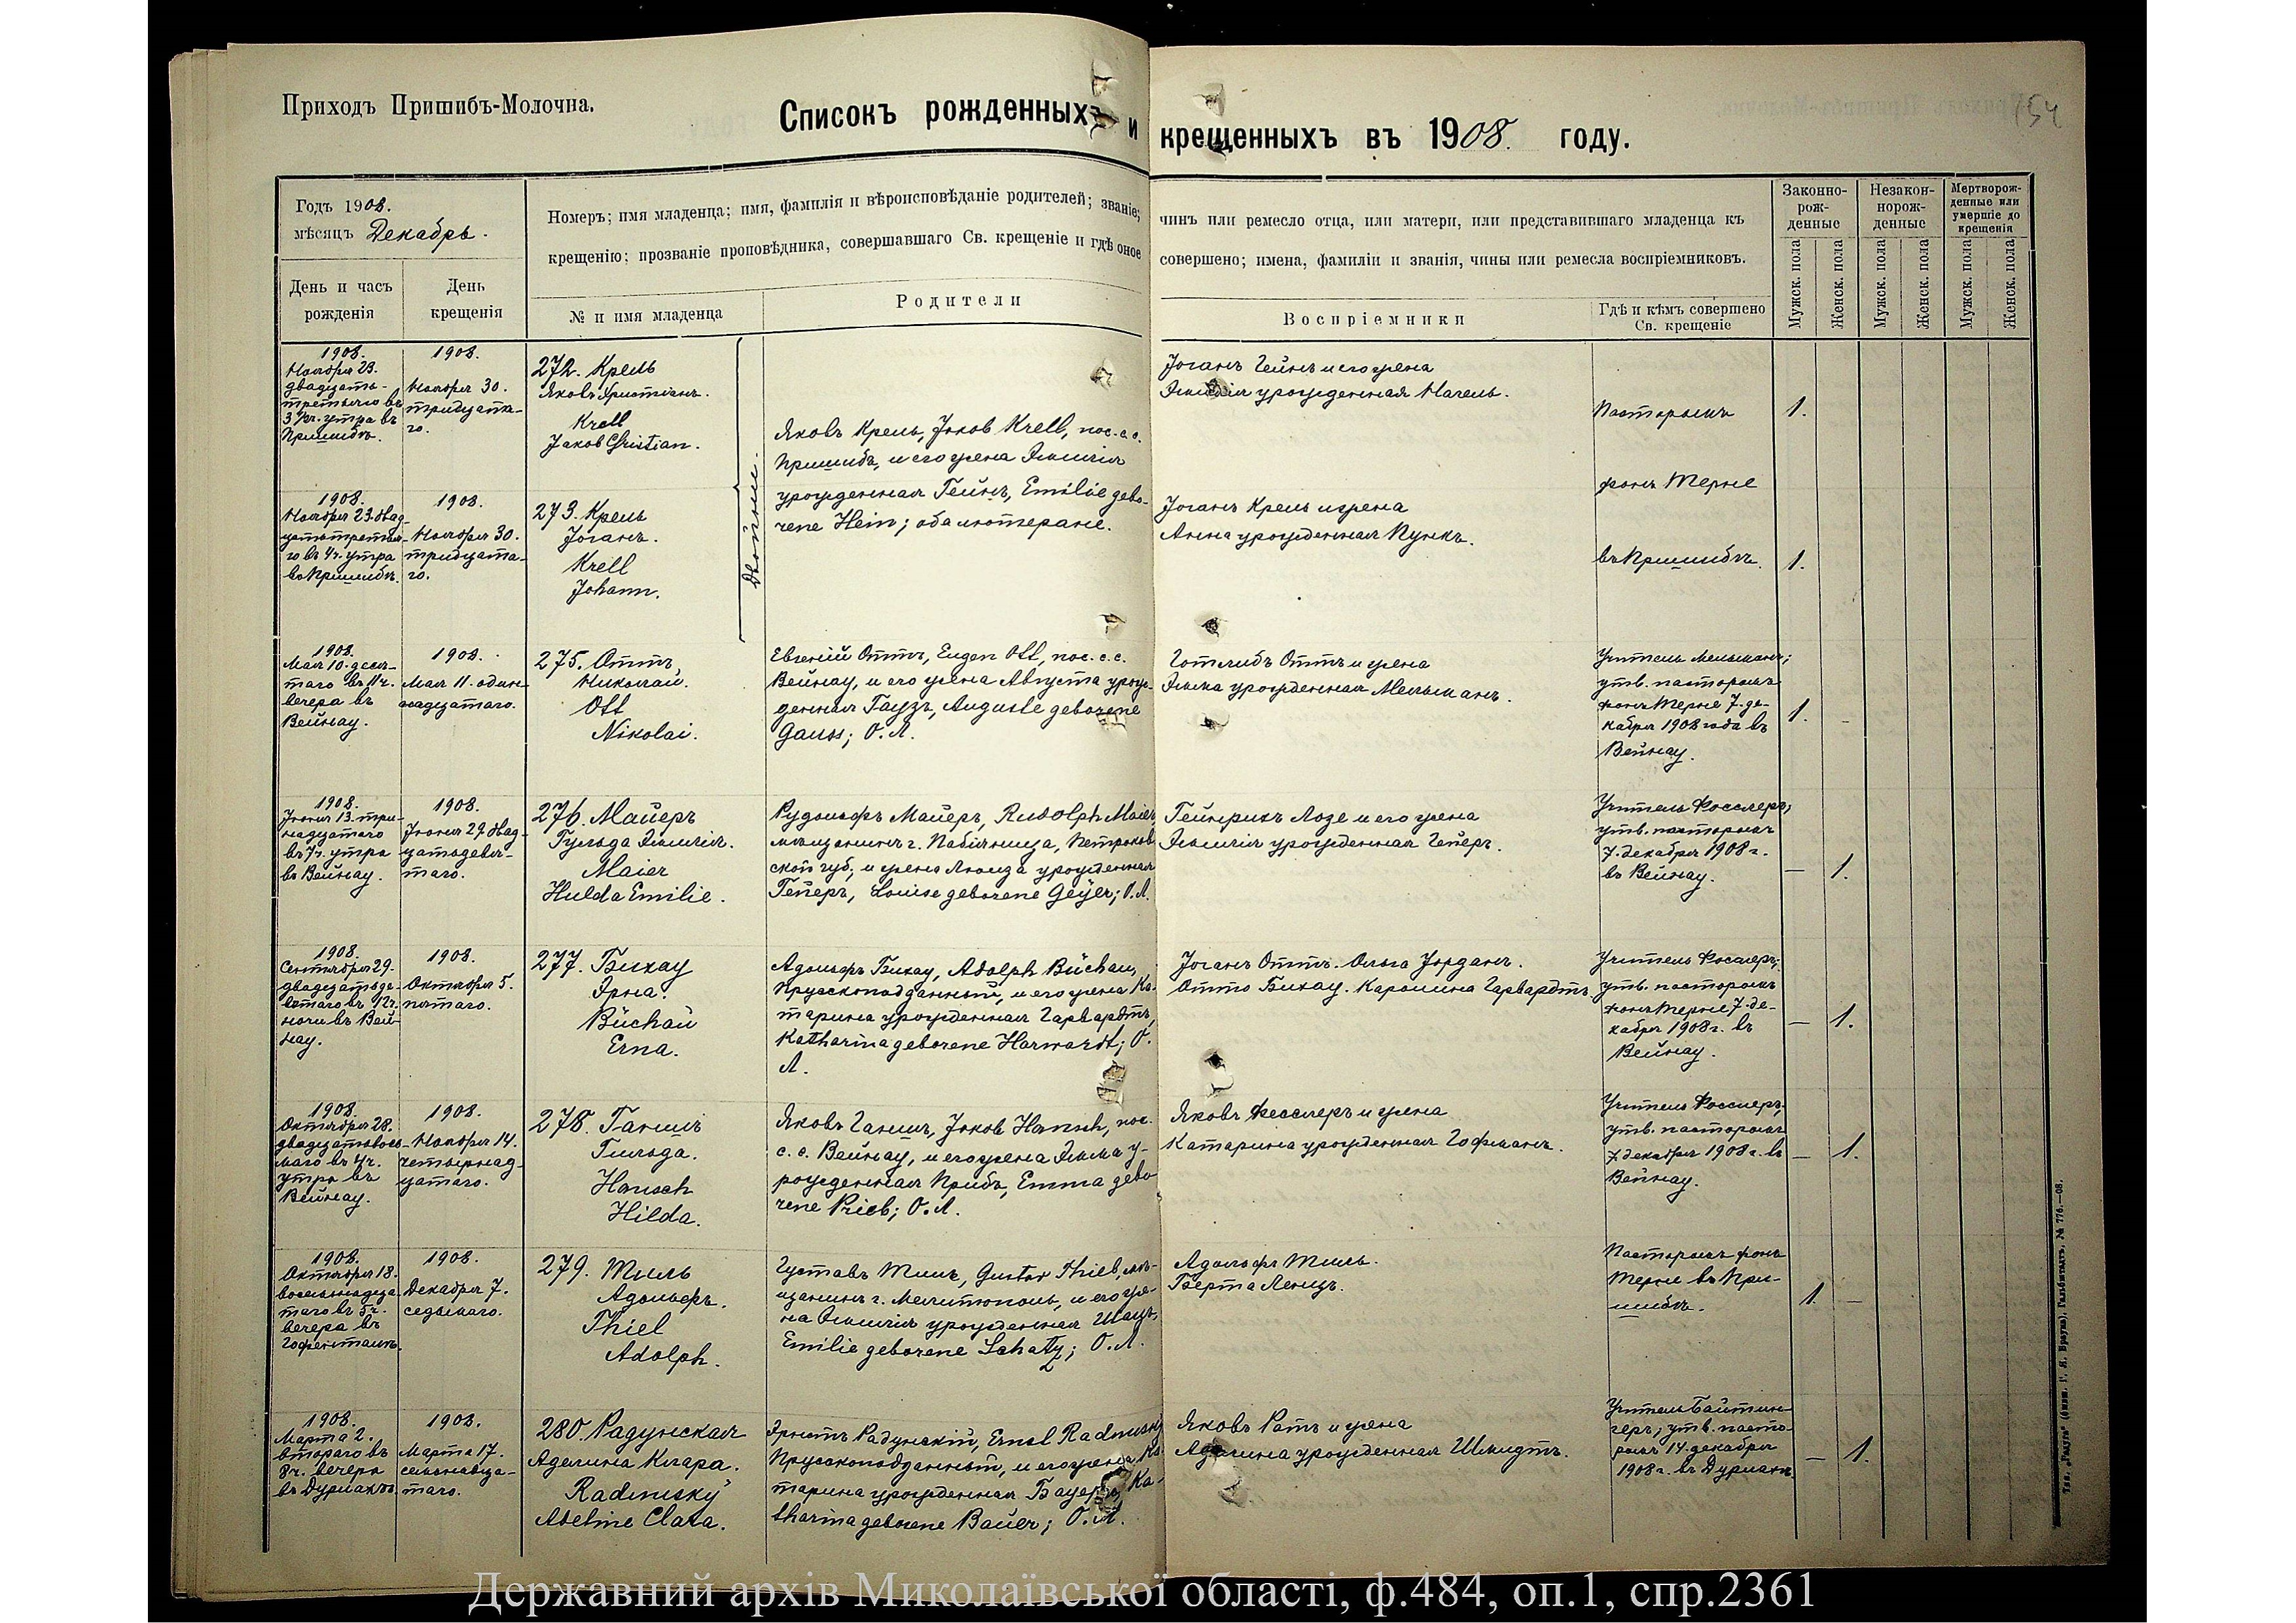 Приходъ Пришибъ-Молочна.
154
Списокъ рожденныхъ и крещенныхъ въ 1908 году.
Годъ 1908.
мѣсяцъ Декабрь.
Номеръ; имя младенца; имя, фамилія и вѣроисповѣданіе родителей; званіе;
крещенію; прозваніе проповѣдника, совершавшаго Св. крещеніе и гдѣ оное
чинъ или ремесло отца, или матери, или представившаго младенца къ
совершено; имена, фамиліи и званія, чины или ремесла воспріемниковъ.
Законно-
рож-
денные
Незакон-
норож-
денные
Мертворож-
денные или
умершіе до
крещенія
Мужск. пола
Женск. пола
Мужск. пола
Женск. пола
Мужск. пола
Женск. пола
День и часъ
рожденія
День
крещенія
№ и имя младенца
Родители
Воспріемники
Гдѣ и кѣмъ совершено
Св. крещеніе
1908.
Ноября 23.
двадцать-
третьяго въ
3 ½ч. утра въ
Пришибѣ.
1908.
Ноября 30.
тридцата-
го.
272. Крель
Яковъ Христіанъ.
Krell
Jakob Christian.
двойни.
Яковъ Крель, Jakob Krell, пос. с. с.
Пришибъ, и его жена Эмилія
урожденная Гейнъ, Emilie gebo-
rene Hein; оба лютеране.
Іоганъ Гейнъ и его жена
Эмилія урожденная Нагель.
Пасторомъ
фонъ Терне
въ Пришибѣ.
1.
1908.
Ноября 23. двад-
цать третья-
го въ 4ч. утра
въ Пришибѣ.
1908.
Ноября 30.
тридцата-
го.
273. Крель
Іоганъ.
Krell
Johann.
Іоганъ Крель и жена
Анна урожденная Пункъ.
1.
1908.
Мая 10. деся-
таго въ 11ч.
вечера въ
Вейнау.
1908.
Мая 11. один-
надцатаго.
275. Оттъ,
Николай.
Ott
Nikolai.
Евгеній Оттъ, Eugen Ott, пос. с. с.
Вейнау, и его жена Августа урож-
денная Гаузъ, Auguste geborene
Gauss; О. Л.
Готлибъ Оттъ и жена
Эмма урожденная Мельманъ.
Учитель Мельманъ;
утв. пасторомъ
фонъ Терне 7. де-
кабря 1908 года въ
Вейнау.
1. -
1908.
Іюня 13. три-
надцатаго
въ 7ч. утра
въ Вейнау.
1908.
Іюня 29. двад-
цатьдевя-
таго.
276. Майеръ
Гульда Эмилія.
Maier
Hulda Emilie.
Рудольфъ Майеръ, Rudolph Maier,
мѣщанинъ г. Пабіяница, Петроков-
ской губ., и жена Луиза урожденная
Гейеръ, Louise geborene Geÿer; О. Л.
Гейнрихъ Лозе и его жена
Эмилія урожденная Гейеръ.
Учитель Фесслеръ;
утв. пасторомъ
7. декабря 1908 г.
въ Вейнау.
— 1.
1908.
Сентября 29.
двадцатьде-
вятаго въ 12ч.
ночи въ Вей-
нау.
1908.
Октября 5.
пятаго.
277. Бихау
Эрна.
Büchau
Erna.
Адольфъ Бихау, Adolph Büchau,
Прусскоподданный, и его жена Ка-
тарина урожденная Гарвардтъ,
Katharina geborene Harwardt; О.
Л.
Іоганъ Оттъ. Ольга Іорданъ.
Отто Бихау. Каролина Гарвардтъ.
Учитель Фесслеръ;
утв. пасторомъ
фонъ Терне 7. де-
кабря 1908 г. въ
Вейнау.
— 1.
1908.
Октября 28.
двадцатьвось-
маго въ 4ч.
утра въ
Вейнау.
1908.
Ноября 14.
четырнад-
цатаго.
278. Ганшъ
Гильда.
Hansch
Hilda.
Яковъ Ганшъ, Jakob Hansch, пос.
с. с. Вейнау, и его жена Эмма у-
рожденная Прибъ, Emma gebo-
rene Prieb; О. Л.
Яковъ Фесслеръ и жена
Катарина урожденная Гофманъ.
Учитель Фесслеръ,
утв. пасторомъ
7. декабря 1908 г. въ
Вейнау.
— 1.
1908.
Октября 18.
восемнадца-
таго въ 5ч.
вечера въ
Гофенталѣ.
1908.
Декабря 7.
седьмаго.
279. Тиль
Адольфъ.
Thiel
Adolph.
Густавъ Тиль, Gustav Thiel, мѣ-
щанинъ г. Мелитополь, и его же-
на Эмилія урожденная Шацъ,
Emilie geborene Schatz; О. Л.
Адольфъ Тиль.
Берта Ленцъ.
Пасторомъ фонъ
Терне въ При-
шибѣ.
1. —
1908.
Марта 2.
втораго въ
8ч. вечера
въ Дурлахѣ.
1908.
Марта 17.
семнадца-
таго.
280. Радунская
Аделина Клара.
Radunskÿ
Adeline Clara.
Эрнстъ Радунскій, Ernst Radunskÿ
Прусскоподданный, и его жена Ка-
тарина урожденная Бауеръ, Ka-
tharina geborene Bauer; О. Л.
Яковъ Ротъ и жена
Аделина урожденная Шмидтъ.
Учитель Байтин-
геръ; утв. пасто-
ромъ 14. декабря
1908 г. въ Дурлахѣ.
— 1.
Тип. „Радуга" (бывш. Г. Я. Брауна), Гальбштадтъ, № 776.—08.
Державний архів Миколаївської області, ф.484, оп.1, спр.2361